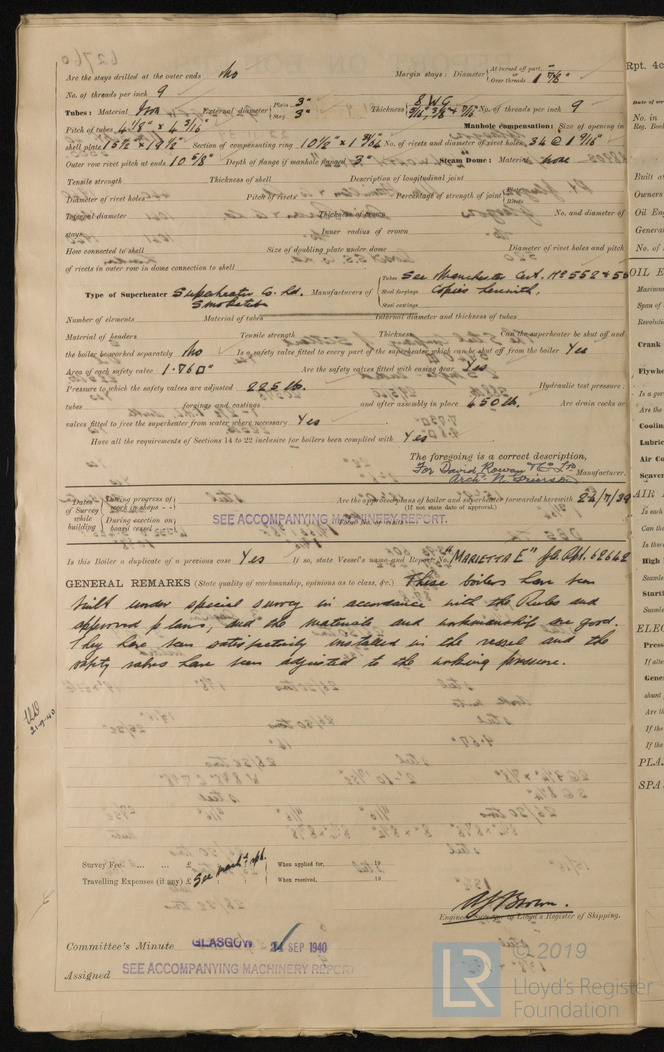 Are the stays drilled at the outer ends No Margin stays: Diameter { At turned off part, Over threads 1 7/8"
No. of threads per inch 9
Tubes: Material Iron External diameter { Plain 3" Stay 3" Thickness { 8 WG 5/16, 3/8 & 7/16" No. of threads per inch 9
Pitch of tubes 4 1/8" x 4 3/16" Manhole compensation: Size of opening in
shell plate 15 1/2" x 19 1/2" Section of compensating ring No. of rivets and diameter of rivet holes 34 @ 1 9/16"
Outer row rivet pitch at ends 10 5/8" Depth of flange if manhole flanged 3" Steam Dome: Material none
Tensile strength Thickness of shell Description of longitudinal joint
Diameter of rivet holes Pitch of rivets Percentage of strength of joint { Plate Rivets
Internal diameter Thickness of crown No. and diameter of
stays Inner radius of crown
How connected to shell Size of doubling plate under dome Diameter of rivet holes and pitch
of rivets in outer row in dome connection to shell
Type of Superheater Superheater Co. Ld. Smoketube Manufacturers of { Tubes See Manchester Cert. Nos 552 & 55 Steel forgings Copies herewith. Steel castings
Number of elements Material of tubes Internal diameter and thickness of tubes
Material of headers Tensile strength Thickness Can the superheater be shut off and
the boiler be worked separately No Is a safety valve fitted to every part of the superheater which can be shut off from the boiler Yes
Area of each safety valve 1·76□" Are the safety valves fitted with easing gear Yes
Pressure to which the safety valves are adjusted 225 lb. Hydraulic test pressure:
tubes forgings and castings and after assembly in place 450 lb. Are drain cocks or
valves fitted to free the superheater from water where necessary Yes
Have all the requirements of Sections 14 to 22 inclusive for boilers been complied with Yes
The foregoing is a correct description,
For David Rowan & Co Ltd Manufacturer.
Dates of Survey while building { During progress of work in shops - - During erection on board vessel - - - Are the approved plans of boiler and superheater forwarded herewith 24/7/39
(If not state date of approval.)
SEE ACCOMPANYING MACHINERY REPORT.
Is this Boiler a duplicate of a previous case Yes If so, state Vessel's name and Report No. "MARIETTA E" Gls. Rpt. 62642
GENERAL REMARKS (State quality of workmanship, opinions as to class, &c.) These boilers have been
built under special survey in accordance with the Rules and
approved plans, and the materials and workmanship are good.
They have been satisfactorily installed in the vessel and the
safety valves have been adjusted to the working pressure.
21-9-40
Survey Fee ... ... ... £ See Mach'y rpt. When applied for, 19
Travelling Expenses (if any) £ When received, 19
Engineer Surveyor to Lloyd's Register of Shipping.
Committee's Minute GLASGOW 24 SEP 1940
Assigned SEE ACCOMPANYING MACHINERY REPORT
© 2019
LR
Lloyd's Register
Foundation
Rpt. 4c
No. in
Reg. Book
Built at
Owners
Oil Eng
General
No. of
OIL E
Maximum
Span of
Revolution
Crank
Flywhe
Is a gov
Are the
Cooling
Lubric
Air Co
Scaven
AIR
Is each
Can the
Is there
High
Seamle
Starti
Seamle
ELEC
Press
If alte
Gener
shunt
Are th
If the
If the
PLA
SPA